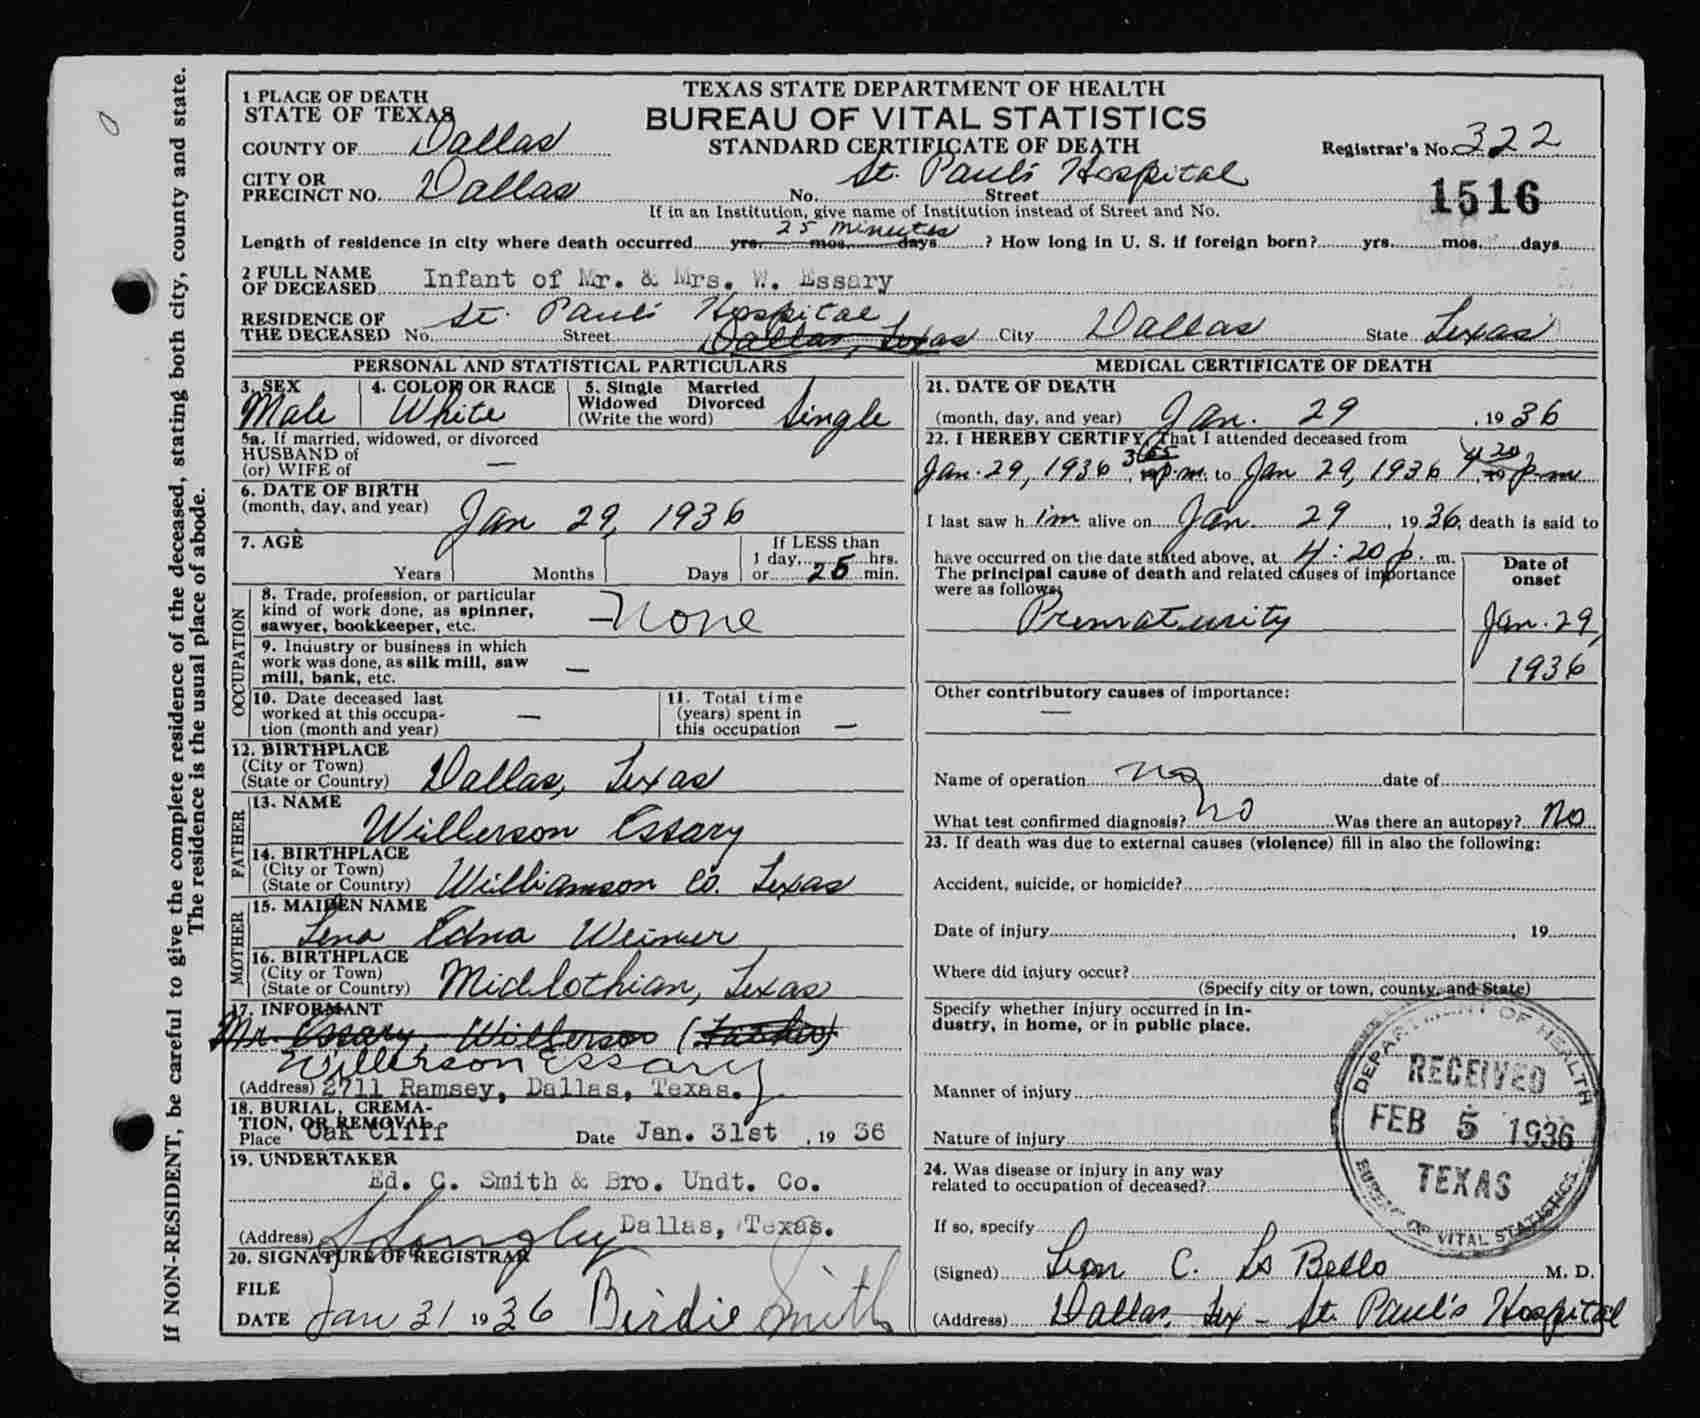 TEXAS STATE DEPARTMENT OF HEALTH
BUREAU OF VITAL STATISTICS
STANDARD CERTIFICATE OF DEATH
1 PLACE OF DEATH
STATE OF TEXAS
COUNTY OF Dallas
Registrar's No. 322
CITY OR
PRECINCT NO. Dallas No. St. Paul's Hospital Street
1516
If in an Institution, give name of Institution instead of Street and No.
25 minutes
Length of residence in city where death occurred yrs. mos. days ? How long in U. S. if foreign born? yrs. mos. days
2 FULL NAME
OF DECEASED Infant of Mr. & Mrs. W. Essary
RESIDENCE OF
THE DECEASED No. St. Paul's Hospital Street Dallas, Texas City Dallas State Texas
PERSONAL AND STATISTICAL PARTICULARS
3. SEX Male
4. COLOR OR RACE White
5. Single Married
Widowed Divorced
(Write the word) Single
5a. If married, widowed, or divorced
HUSBAND of
(or) WIFE of —
6. DATE OF BIRTH
(month, day, and year) Jan 29, 1936
7. AGE
Years Months Days
If LESS than
1 day, hrs.
or 25 min.
OCCUPATION
8. Trade, profession, or particular
kind of work done, as spinner,
sawyer, bookkeeper, etc. None
9. Industry or business in which
work was done, as silk mill, saw
mill, bank, etc. —
10. Date deceased last
worked at this occupa-
tion (month and year) —
11. Total time
(years) spent in
this occupation —
12. BIRTHPLACE
(City or Town)
(State or Country) Dallas, Texas
FATHER
13. NAME
Willerson Essary
14. BIRTHPLACE
(City or Town)
(State or Country) Williamson Co. Texas
MOTHER
15. MAIDEN NAME
Lena Edna Weimer
16. BIRTHPLACE
(City or Town)
(State or Country) Midlothian, Texas
17. INFORMANT
Mr. Essary, Willerson (Father)
Willerson Essary
(Address) 2711 Ramsey, Dallas, Texas.
18. BURIAL, CREMA-
TION, OR REMOVAL
Place Oak Cliff Date Jan. 31st , 19 36
19. UNDERTAKER
Ed. C. Smith & Bro. Undt. Co.
(Address) Dallas, Texas.
20. SIGNATURE OF REGISTRAR
FILE
DATE Jan 31 1936 Birdie Smith
MEDICAL CERTIFICATE OF DEATH
21. DATE OF DEATH
(month, day, and year) Jan. 29 , 1936
22. I HEREBY CERTIFY, That I attended deceased from
Jan. 29, 1936 3 55 p.m. to Jan 29, 1936 4 20 p.m
I last saw h im alive on Jan. 29 , 1936, death is said to
have occurred on the date stated above, at 4:20 p. m.
The principal cause of death and related causes of importance
were as follows:
Date of
onset
Prematurity
Jan. 29,
1936
Other contributory causes of importance:
—
Name of operation no date of
What test confirmed diagnosis? no Was there an autopsy? No
23. If death was due to external causes (violence) fill in also the following:
Accident, suicide, or homicide?
Date of injury , 19
Where did injury occur?
(Specify city or town, county, and State)
Specify whether injury occurred in In-
dustry, in home, or in public place.
Manner of injury
Nature of injury
24. Was disease or injury in any way
related to occupation of deceased?
If so, specify
(Signed) Leon C. Lo Bello M. D.
(Address) Dallas, Tex - St. Paul's Hospital
DEPARTMENT OF HEALTH
RECEIVED
FEB 5 1936
TEXAS
BUREAU OF VITAL STATISTICS
If NON-RESIDENT, be careful to give the complete residence of the deceased, stating both city, county and state.
The residence is the usual place of abode.